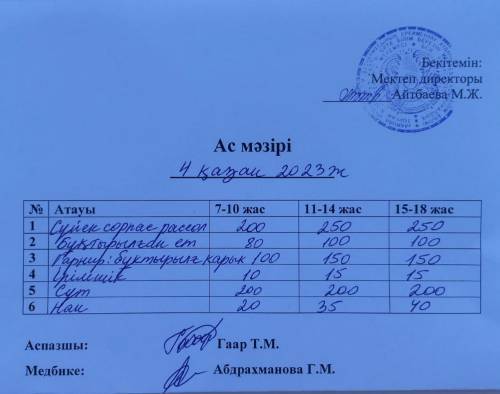 Бекітемін:
Мектеп директоры
Айтбаева М.Ж.
Ас мәзірі
4 қазан 2023ж
№ Атауы 7-10 жас 11-14 жас 15-18 жас
1 Сүйек сорпас рассол 200 250 250
2 бұқтырылған ет 80 100 100
3 Гарнир: бұқтырылғ қарык 100 150 150
4 Ірімшік 10 15 15
5 Сүт 200 200 200
6 Нан 20 35 40
Аспазшы: Гаар Т.М.
Медбике: Абдрахманова Г.М.